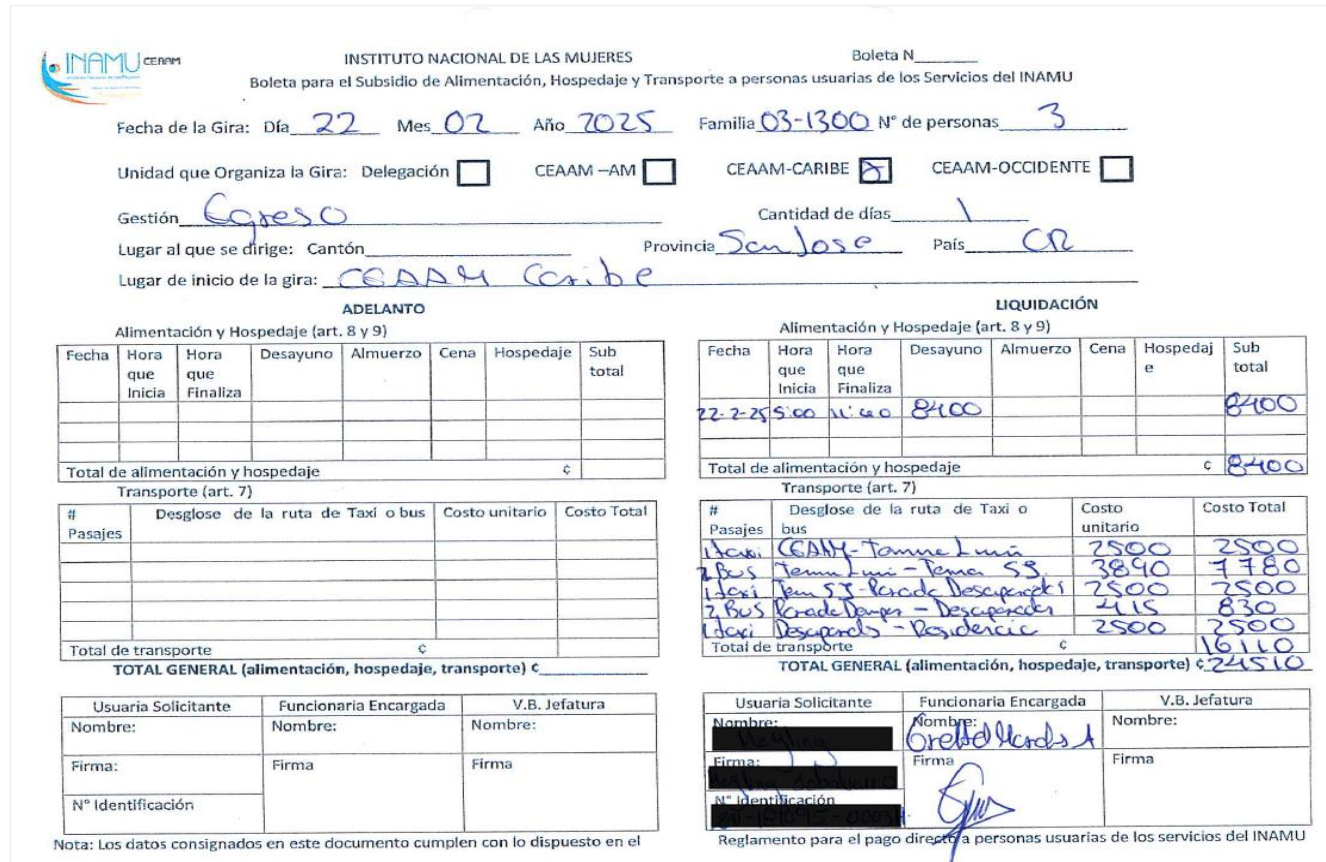 INAMU CEAAM
INSTITUTO NACIONAL DE LAS MUJERES Boleta N
Boleta para el Subsidio de Alimentación, Hospedaje y Transporte a personas usuarias de los Servicios del INAMU
Fecha de la Gira: Día 22 Mes 02 Año 2025 Familia 03-1300 N° de personas 3
Unidad que Organiza la Gira: Delegación CEAAM –AM CEAAM-CARIBE CEAAM-OCCIDENTE
Gestión Egreso Cantidad de días 1
Lugar al que se dirige: Cantón Provincia San Jose País CR
Lugar de inicio de la gira: CEAAM Caribe
ADELANTO
Alimentación y Hospedaje (art. 8 y 9)
Fecha Hora que Inicia Hora que Finaliza Desayuno Almuerzo Cena Hospedaje Sub total
Total de alimentación y hospedaje ¢
Transporte (art. 7)
# Pasajes Desglose de la ruta de Taxi o bus Costo unitario Costo Total
Total de transporte ¢
TOTAL GENERAL (alimentación, hospedaje, transporte) ¢
Usuaria Solicitante Funcionaria Encargada V.B. Jefatura
Nombre: Nombre: Nombre:
Firma: Firma Firma
N° Identificación
Nota: Los datos consignados en este documento cumplen con lo dispuesto en el
LIQUIDACIÓN
Alimentación y Hospedaje (art. 8 y 9)
Fecha Hora que Inicia Hora que Finaliza Desayuno Almuerzo Cena Hospedaje Sub total
22-2-25 5:00 8400 8400
Total de alimentación y hospedaje ¢ 8400
Transporte (art. 7)
# Pasajes Desglose de la ruta de Taxi o bus Costo unitario Costo Total
1 taxi CEAAM- 2500 2500
2 Bus 3890 7780
1 taxi 2500 2500
2 Bus 415 830
1 taxi - Residencia 2500 2500
Total de transporte ¢ 16110
TOTAL GENERAL (alimentación, hospedaje, transporte) ¢ 24510
Usuaria Solicitante Funcionaria Encargada V.B. Jefatura
Nombre: Nombre: Nombre:
Firma: Firma Firma
N° Identificación
Reglamento para el pago directo a personas usuarias de los servicios del INAMU